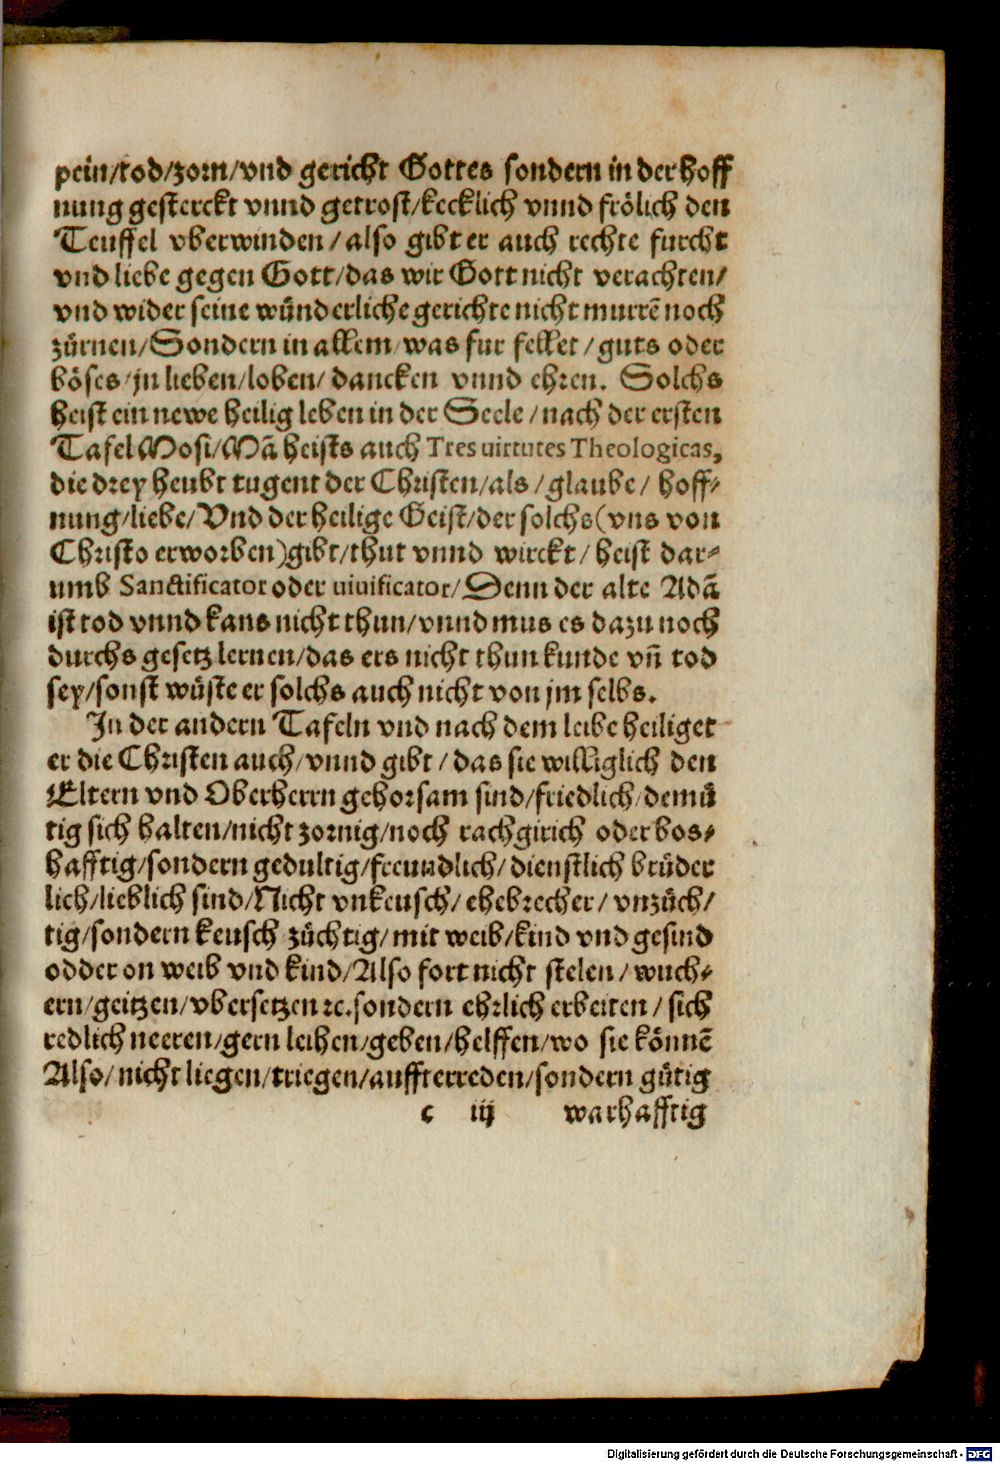 pein/tod/zorn/vnd gericht Gottes sondern in der hoff
nung gesterckt vnnd getrost/kecklich vnnd frölich den
Teuffel vberwinden/also gibt er auch rechte furcht
vnd liebe gegen Gott/das wir Gott nicht verachten/
vnd wider seine wünderliche gerichte nicht murrē noch
zürnen/Sondern in allem/was fur fellet/guts oder
böses/jn lieben/loben/dancken vnnd ehren. Solchs
heist ein newe heilig leben in der Seele/nach der ersten
Tafel Mosi/Mā heists auch Tres uirtutes Theologicas,
die drey heubt tugent der Christen/als/glaube/hoff-
nung/liebe/Vnd der heilige Geist/der solchs(vns von
Christo erworben)gibt/thut vnnd wirckt/heist dar-
umb Sanctificator oder uiuificator/Denn der alte Adā
ist tod vnnd kans nicht thun/vnnd mus es dazu noch
durchs gesetz lernen/das ers nicht thun kunde vñ tod
sey/sonst wüste er solchs auch nicht von jm selbs.
In der andern Tafeln vnd nach dem leibe heiliget
er die Christen auch/vnnd gibt/das sie williglich den
Eltern vnd Oberherrn gehorsam sind/friedlich/demü
tig sich halten/nicht zornig/noch rachgirich oder bos-
hafftig/sondern gedultig/freundlich/dienstlich brüder
lich/lieblich sind/Nicht vnkeusch/ehebrecher/vnzüch/
tig/sondern keusch züchtig/mit weib/kind vnd gesind
odder on weib vnd kind/Also fort nicht stelen/wuch-
ern/geitzen/vbersetzen ꝛc.sondern ehrlich erbeiten/sich
redlich neeren/gern leihen/geben/helffen/wo sie könnē
Also/nicht liegen/triegen/auffterreden/sondern gütig
c iij warhafftig
Digitalisierung gefördert durch die Deutsche Forschungsgemeinschaft - DFG